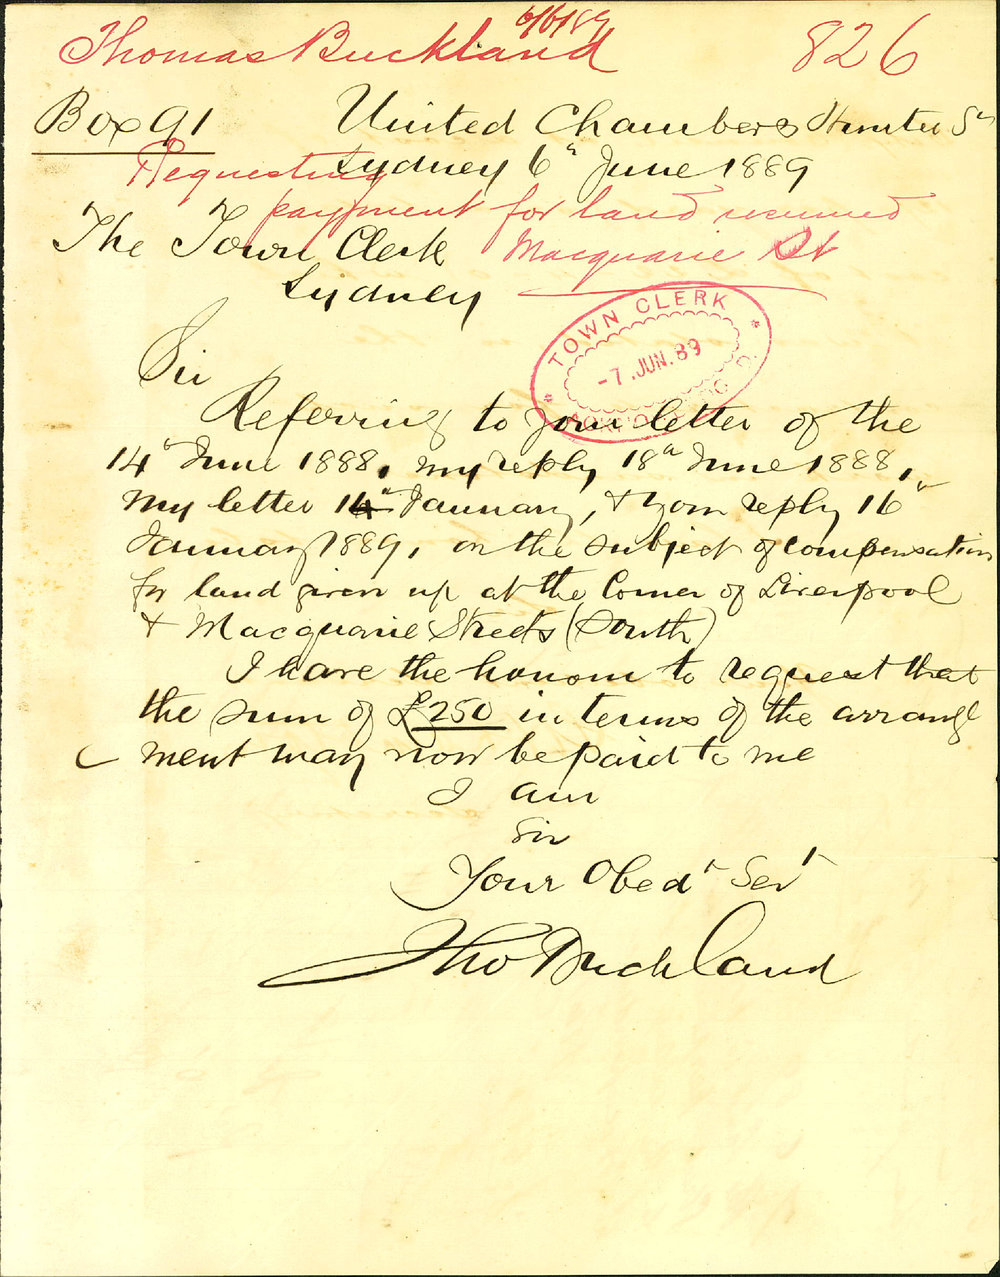 6/6/89
Thomas Buckland 826
Box 91 United Chambers Hunter St
Requesting Sydney 6th June 1889
payment for land resumed
The Town Clerk Macquarie St
Sydney
TOWN CLERK
-7.JUN.89
Sir
Referring to your letter of the
14th June 1888, my reply 18th June 1888,
my letter 14th January, & your reply 16th
January 1889, on the subject of compensation
for land given up at the Corner of Liverpool
& Macquarie Streets (South)
I have the honour to request that
the sum of £250 in terms of the arrange
ment may now be paid to me
I am
Sir
Your Obedt Servt
Tho Buckland